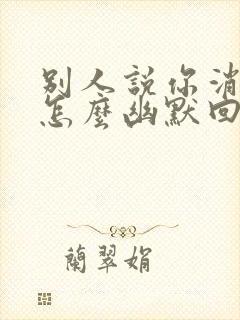 別人說你消
怎麼幽默回
蘭翠娟